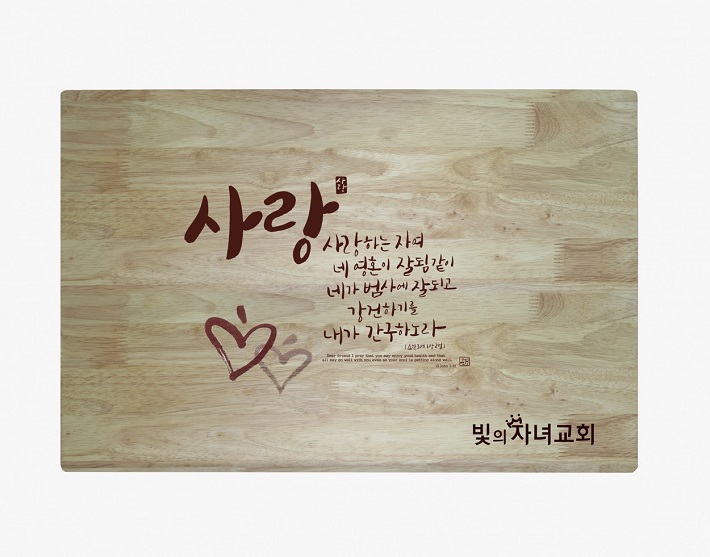 사랑
사랑
사랑하는 자여
네 영혼이 잘됨같이
네가 범사에 잘되고
강건하기를
내가 간구하노라
(요한3서 1장 2절)
Dear friend I pray that you may enjoy good health and that
all may go well with you even as your soul is getting along well.
빛의자녀교회